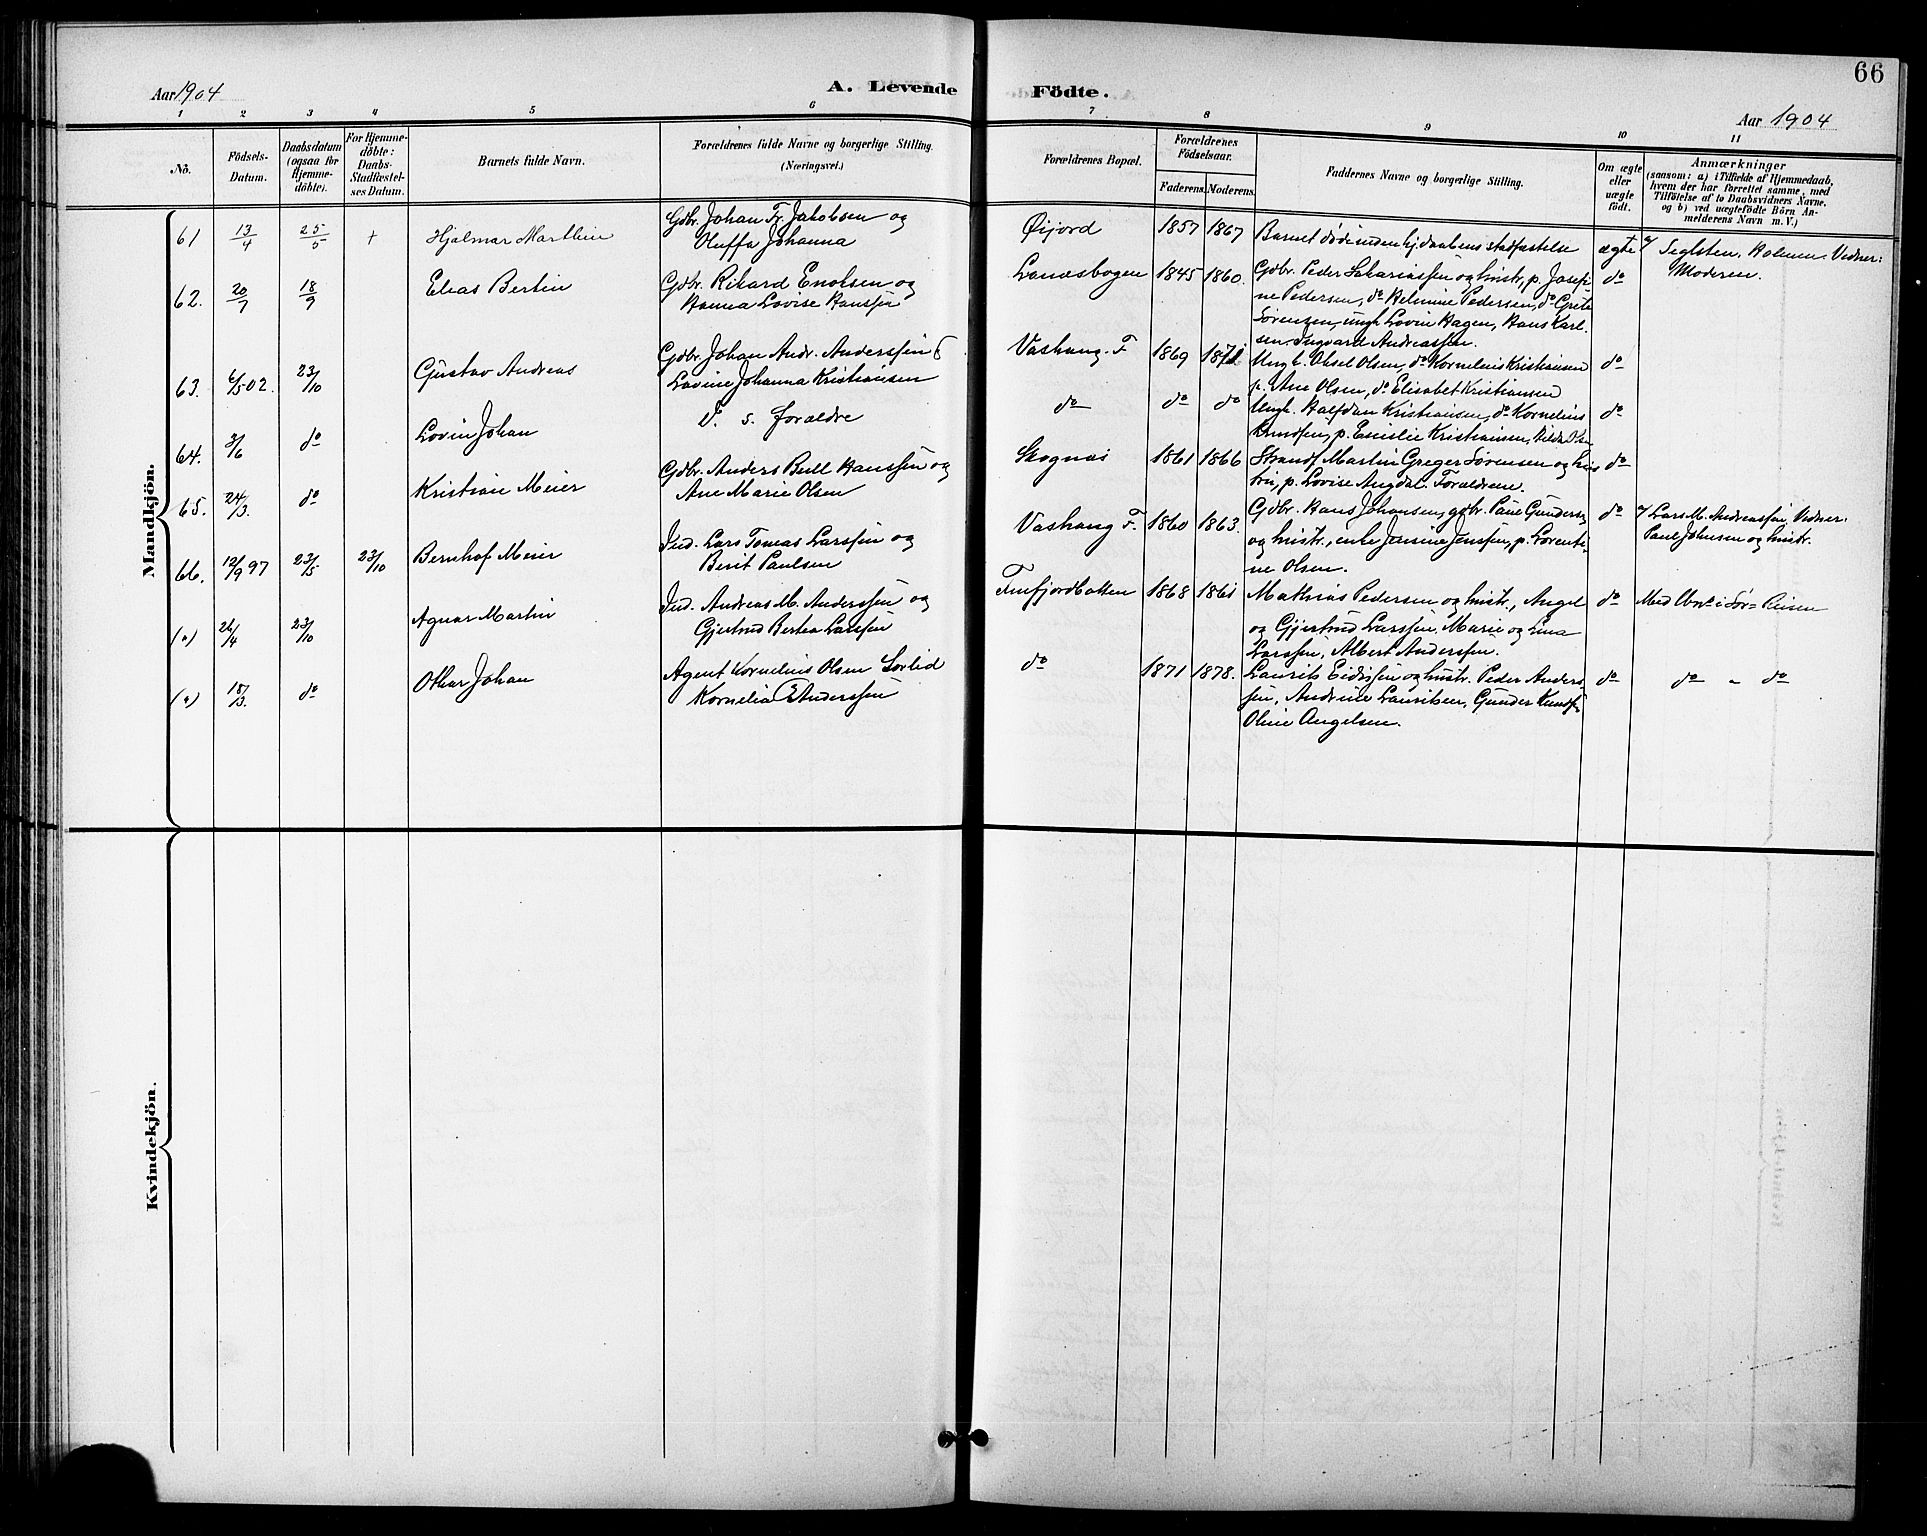 66
Aar 1904
A. Levende Födte.
Aar 1904
1 2 3 4 5 6 7 8 9 10 11
No.
Födsels-Datum.
Daabsdatum (ogsaa for Hjemme-döbte).
For Hjemme-döbte: Daabs-Stadfæstel-ses Datum.
Barnets fulde Navn.
Forældrenes fulde Navne og borgerlige Stilling.
(Næringsvei.)
Forældrenes Bopæl.
Forældrenes Födselsaar.
Faderens. Moderens.
Faddernes Navne og borgerlige Stilling.
Om ægte eller uægte födt.
Anmærkninger
(saasom: a) i Tilfælde af Hjemmedaab, hvem der har forrettet samme, med Tilföielse af to Daabsvidners Navne. og b) ved uægtefödte Börn An-melderens Navn m. V.)
Mandkjön.
61 13/4 25/5 + Hjalmar Marthin
Gdbr. Johan Fr. Jakobsen og
Oluffa Johanna
Øijord 1857 1867
Barnet døde inden hjdaabens stadfæstelse
ægte
Moderen.
62. 20/7 18/9 Elias Bertin
Gdbr. Rikard Enoksen og
Hanna Lovise Hanssen
Lanæsbogen 1845 1860.
Gdbr. Peder Sakariassen og hustr., p. Josefi-
ne Pedersen, do Helmine Pedersen, do Grete
Sørensen, ungk. Lovin Hagen, Hans Karl-
sen, Ingvard Andreassen.
do
63. 6/5 02. 23/10 Gustav Andreas
Gdbr. Johan Andr. Anderssen
Lovine Johanna Kristiansen
Vashaug. F. 1869 1871
Ungk. Oksel Olsen, do Kornelius Kristiansen
p. Ane Olsen, do Elisabet Kristiansen
do
64. 3/6 do Lovin Johan
F. s. forældre
do do do
Ungk. Halfdan Kristiansen, do Kornelius
Knudsen, p. Emilie Kristiansen, Hilda Olsen
do
65. 24/3. do Kristian Meier
Gdbr. Anders Bull Hanssen og
Ane Marie Olsen
Skognæs 1861 1866
Strandf. Martin Greger Sørensen og hu-
stru, p. Lovise Angdal. Forældrene.
do
66. 12/9 97 23/5 23/10 Bernhof Meier
Ind. Lars Tomas Larssen og
Berit Paulsen
Vashaug F. 1860 1863.
Gdbr. Hans Johansen, gdbr. Paul Gundersen
og hustr., enke Jensine Jenssen, p. Lorenti-
ne Olsen.
do
Lars M. Andreassen, Vidner:
Paul Johnsen og hustr.
(a) 26/4 23/10 Agnar Martin
Ind. Andreas M. Anderssen og
Gjertrud Bertea Larssen
Finfjordbotten 1868 1861
Mathias Pedersen og hustr., Angel
og Gjertrud Larssen, Marie og Lina
Larssen, Albert Anderssen.
do
Med Attest i Sør-Reisen
(a) 18/3. do Othar Johan
Agent Kornelius Olsen Sørlid
Kornelia E Anderssen
do 1871 1878.
Laurits Eidissen og hustr. Peder Anders-
sen, Andrine Lauritsen, Gunder Knuds.
Oline Angelsen.
do
do " do
Kvindekjön.